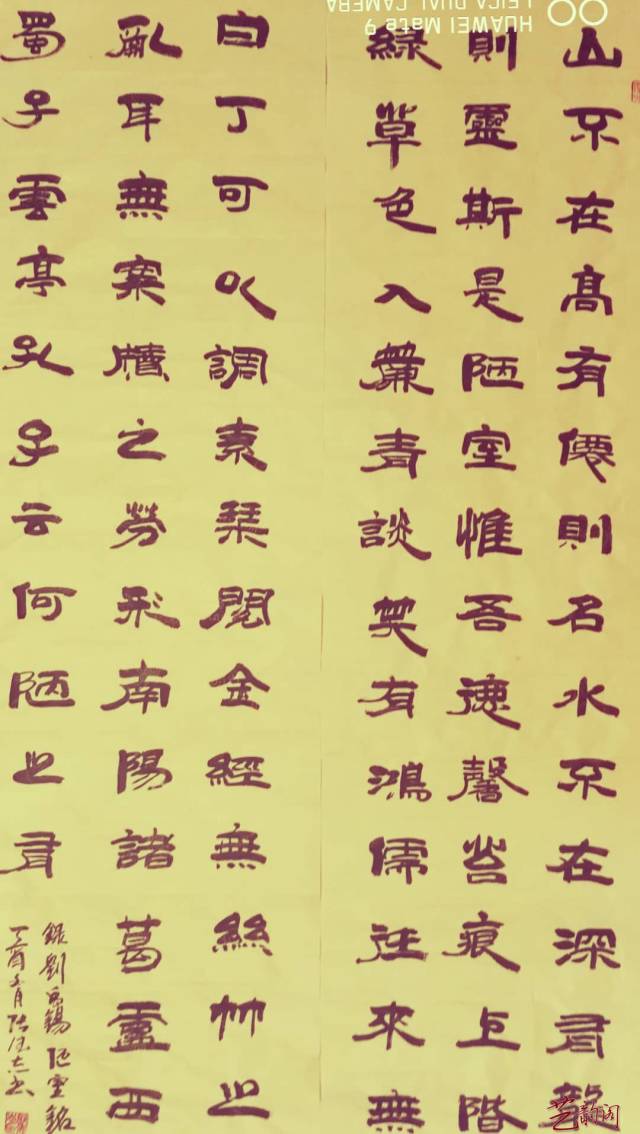 山不在高有僊則名水不在深有龍
則靈斯是陋室惟吾德馨苔痕上階
綠草色入簾青談笑有鴻儒往來無
白丁可以調素琴閱金經無絲竹之
亂耳無案牘之勞形南陽諸葛廬西
蜀子雲亭孔子云何陋之有
錄劉禹錫陋室銘
丁酉月書
HUAWEI Mate 9
LEICA DUAL CAMERA
艺韵阁